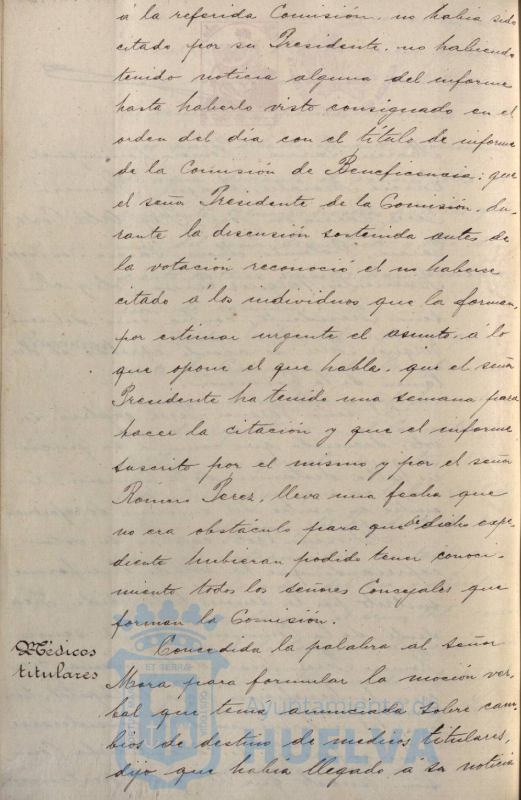 á la referida Comisión, no había sido
citado por su Presidente, no habiendo
tenido noticia alguna del informe
hasta haberlo visto consignado en el
orden del día con el título de informe
de la Comisión de Beneficencia; que
el señor Presidente de la Comisión, du-
rante la discusión sostenida antes de
la votación reconoció el no haberse
citado á los individuos que la forman,
por estimar urgente el asunto, á lo
que opone el que habla, que el señor
Presidente ha tenido una semana para
hacer la citación y que el informe
suscrito por el mismo y por el señor
Romero Perez, lleva una fecha que
no era obstáculo para que de dicho expe-
diente hubieran podido tener conoci-
miento todos los señores Concejales que
forman la Comisión.
Médicos
titulares
Concedida la palabra al señor
Mora para formular la moción ver-
bal que tenía anunciada sobre cam-
bios de destino de medicos titulares,
dijo que había llegado a su noticia
Ayuntamiento de
HUELVA